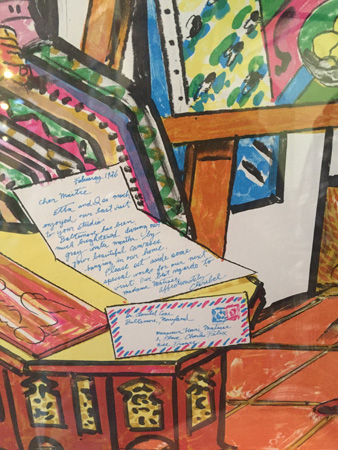 February, 1926
Cher Maître
Etta and I so much
enjoyed our last visit
to your studio.
Baltimore has been
much brightened during our
gray winter months by
your beautiful
hanging in our home.
Please set aside some
special works for our next
visit. Our best regards to
Madame Matisse
Affectionately
Claribel
Dr. Claribel Cone
Baltimore, Maryland
Monsieur Henri Matisse
1, Place Charles Félix
Nice, France